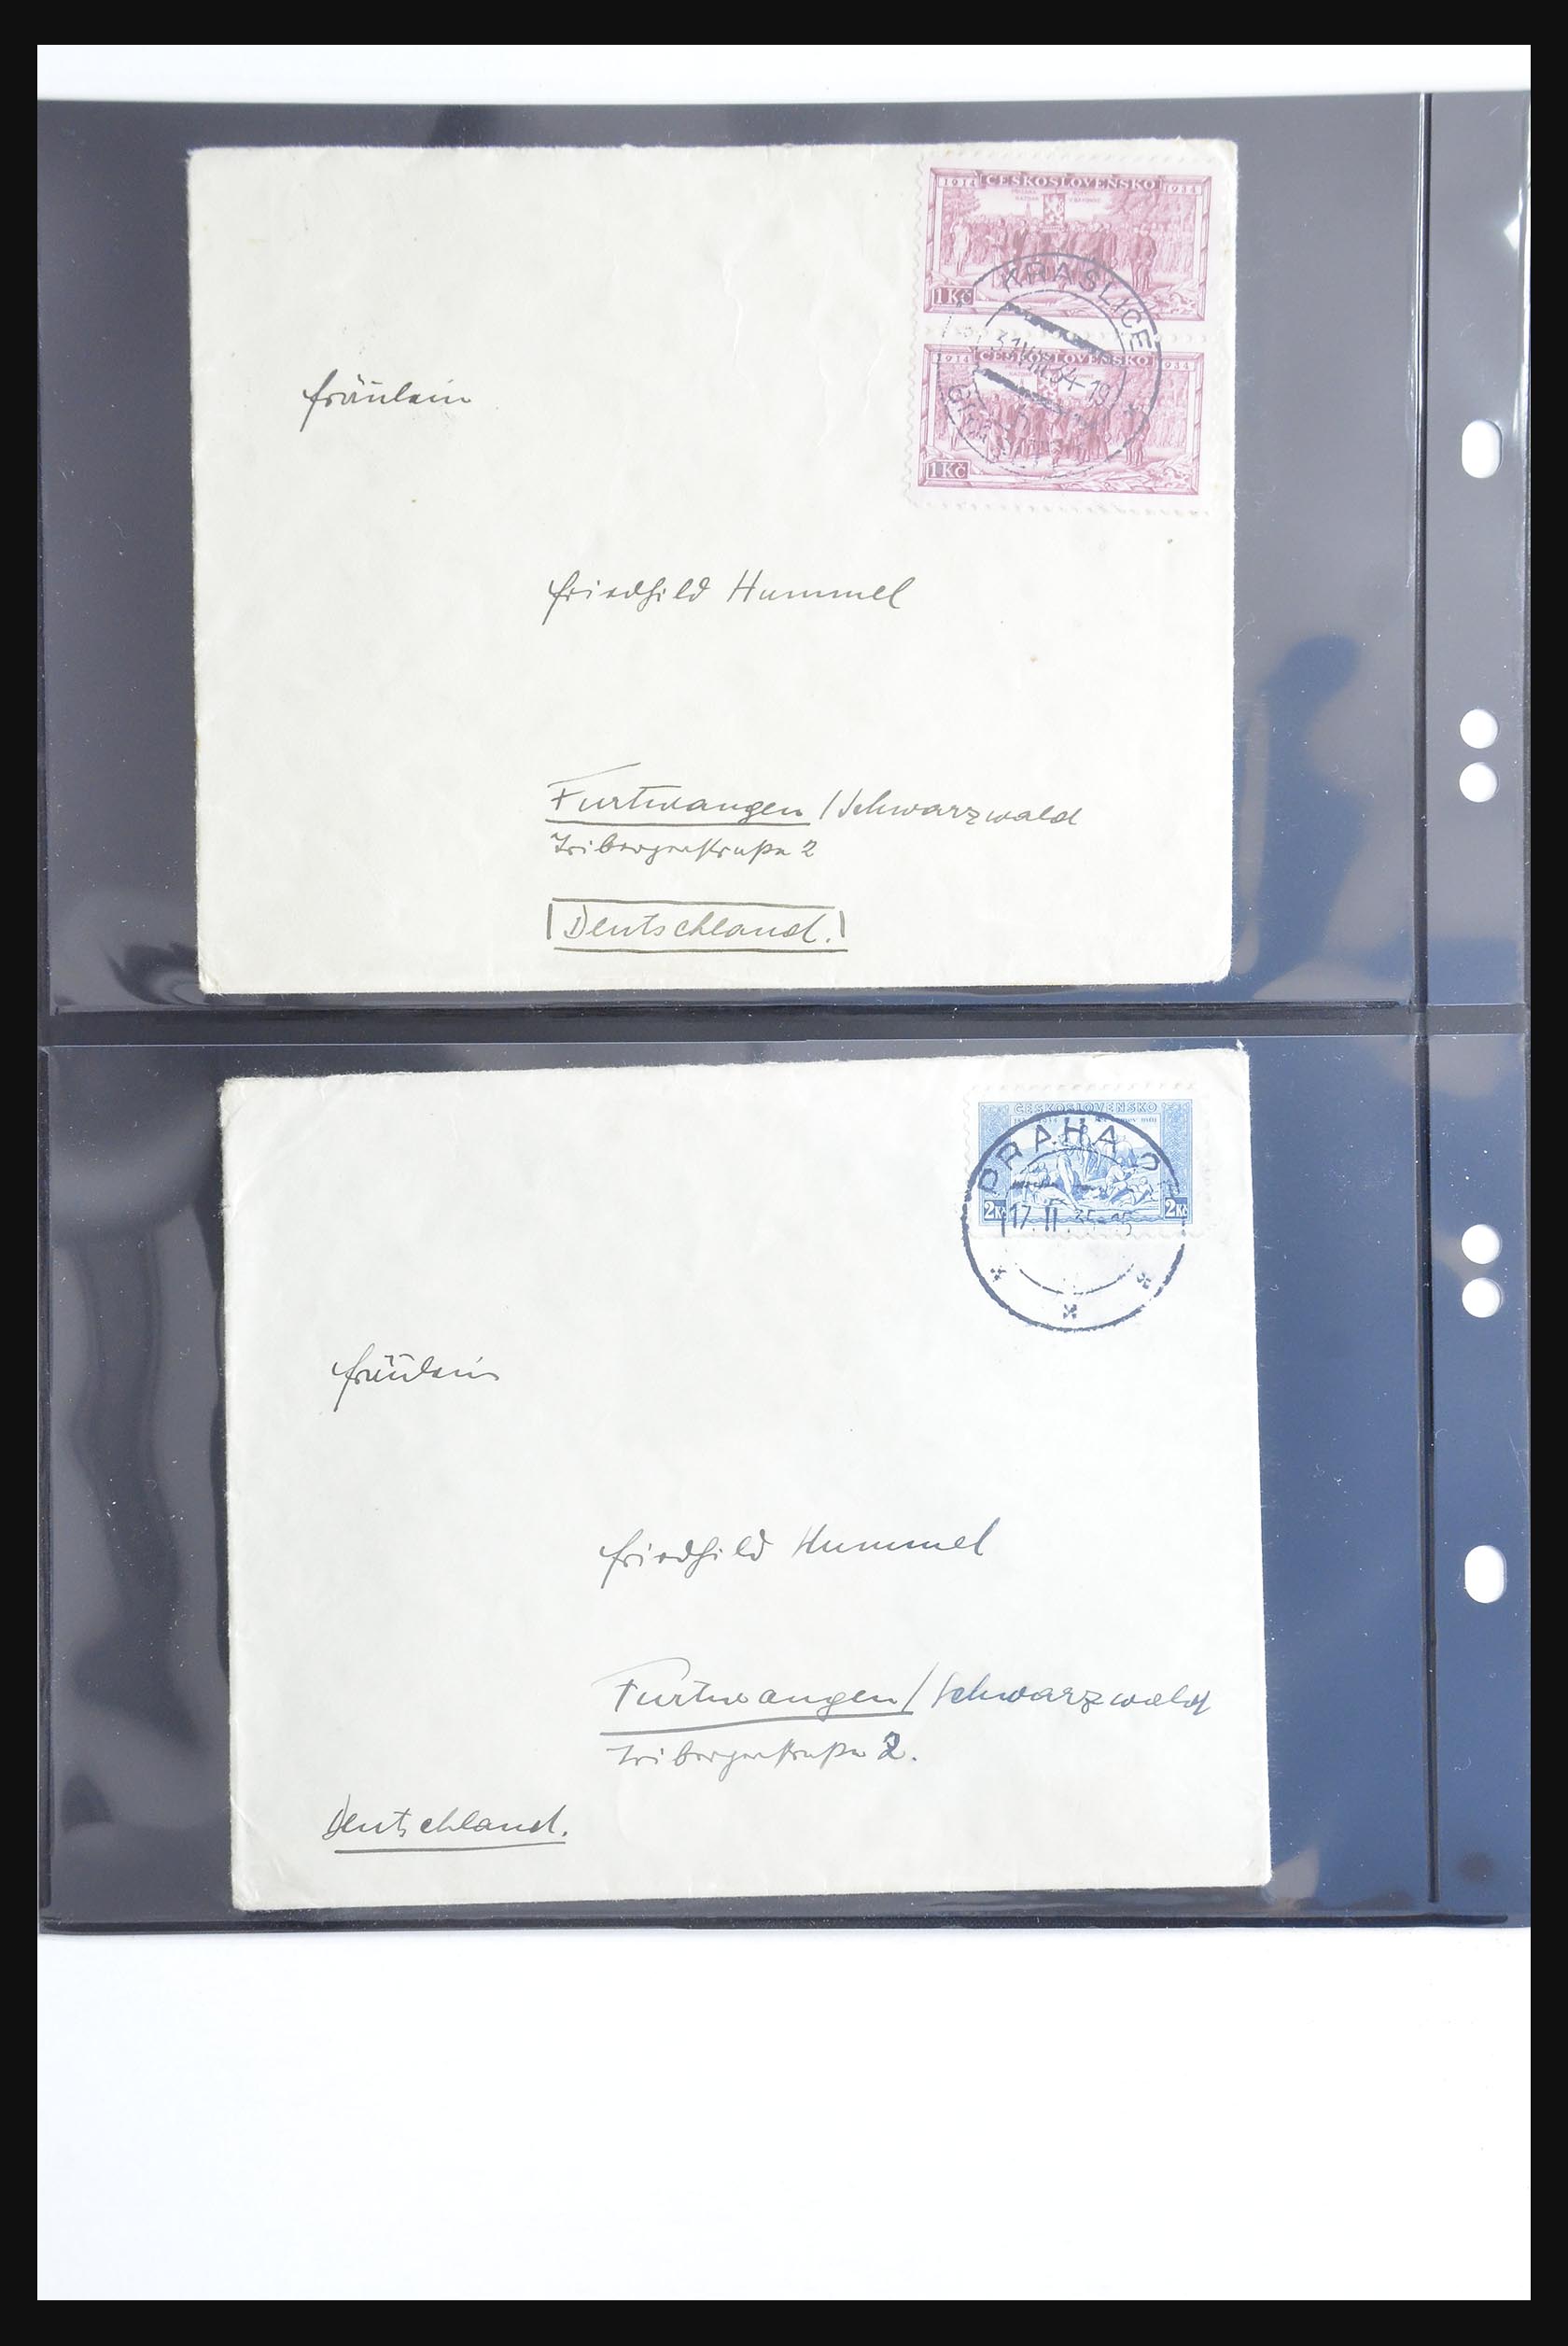 1914 ČESKOSLOVENSKO 1934
1 Kč
KRASLICE
31.VIII.34-19
1914 ČESKOSLOVENSKO 1934
1 Kč
Fräulein
Friedhild Hummel
Furtwangen / Schwarzwald
Tribergerstraße 2
Deutschland.
ČESKOSLOVENSKO
PRAHA
2 Kč 2 Kč
17. II. 35-15
Fräulein
Friedhild Hummel
Furtwangen / Schwarzwald
Tribergerstraße 2.
Deutschland.